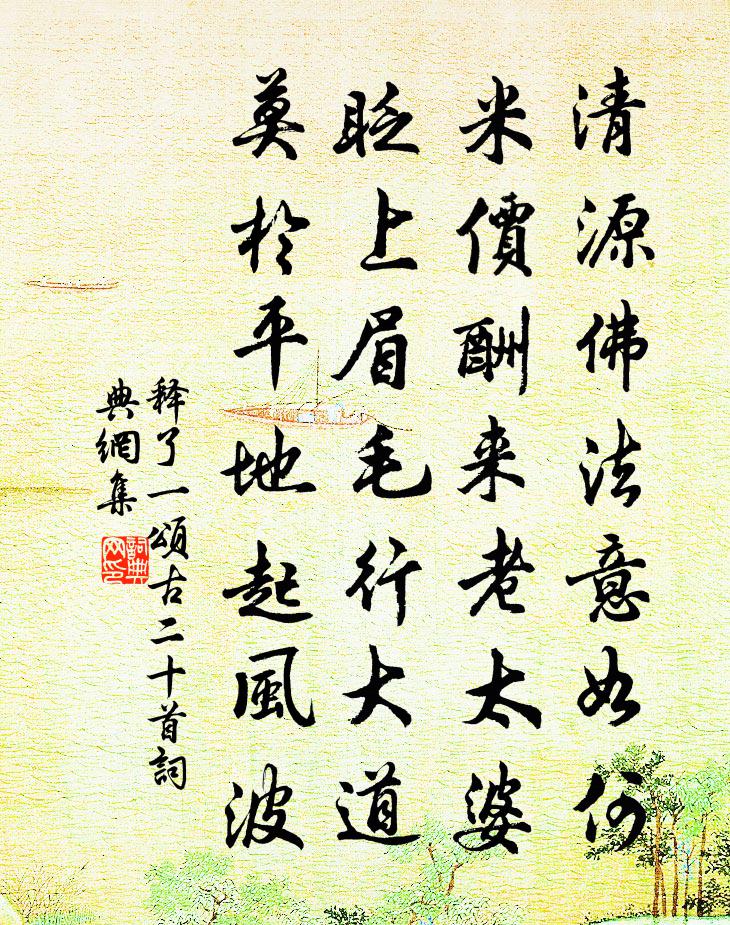 清源佛法意如何
米價酬来老太婆
眨上眉毛行大道
莫於平地起風波
释了一頌古二十首詞
典網集
詞典
网印